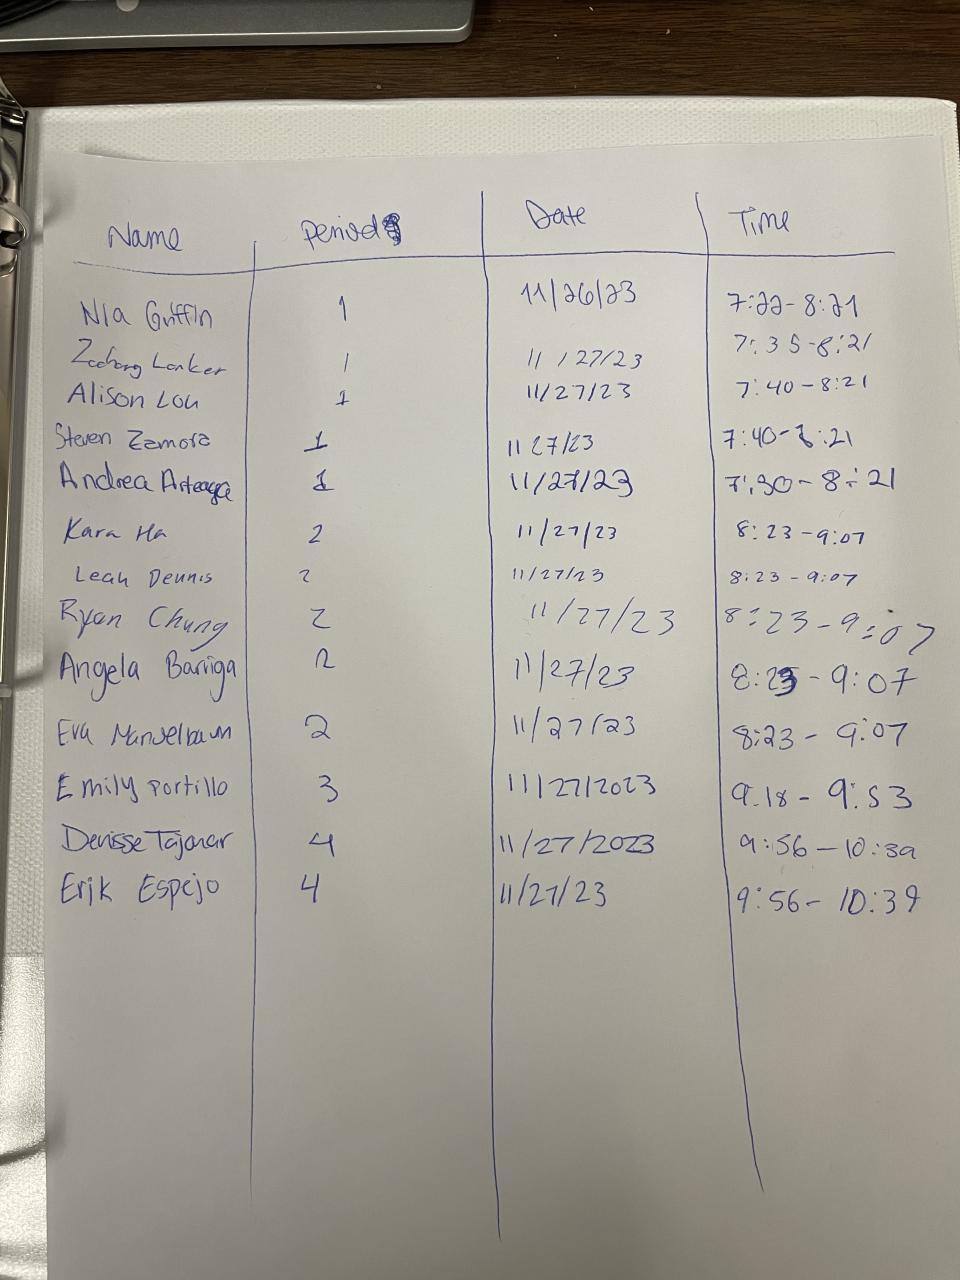 Name Period Date Time
Nia Griffin 1 11/26/23 7:22-8:21
Zachary Lanker 1 11/27/23 7:35-8:21
Alison Lou 1 11/27/23 7:40-8:21
Steven Zamora 1 11 27/23 7:40-8:21
Andrea Arteaga 1 11/27/23 7:30-8:21
Kara Ha 2 11/27/23 8:23-9:07
Leah Dennis 2 11/27/23 8:23-9:07
Ryan Chung 2 11/27/23 8:23-9:07
Angela Barriga 2 11/27/23 8:23-9:07
Eva 2 11/27/23 8:23-9:07
Emily Portillo 3 11/27/2023 9:18-9:53
Denisse Tajonar 4 11/27/2023 9:56-10:39
Erik Espejo 4 11/27/23 9:56-10:39